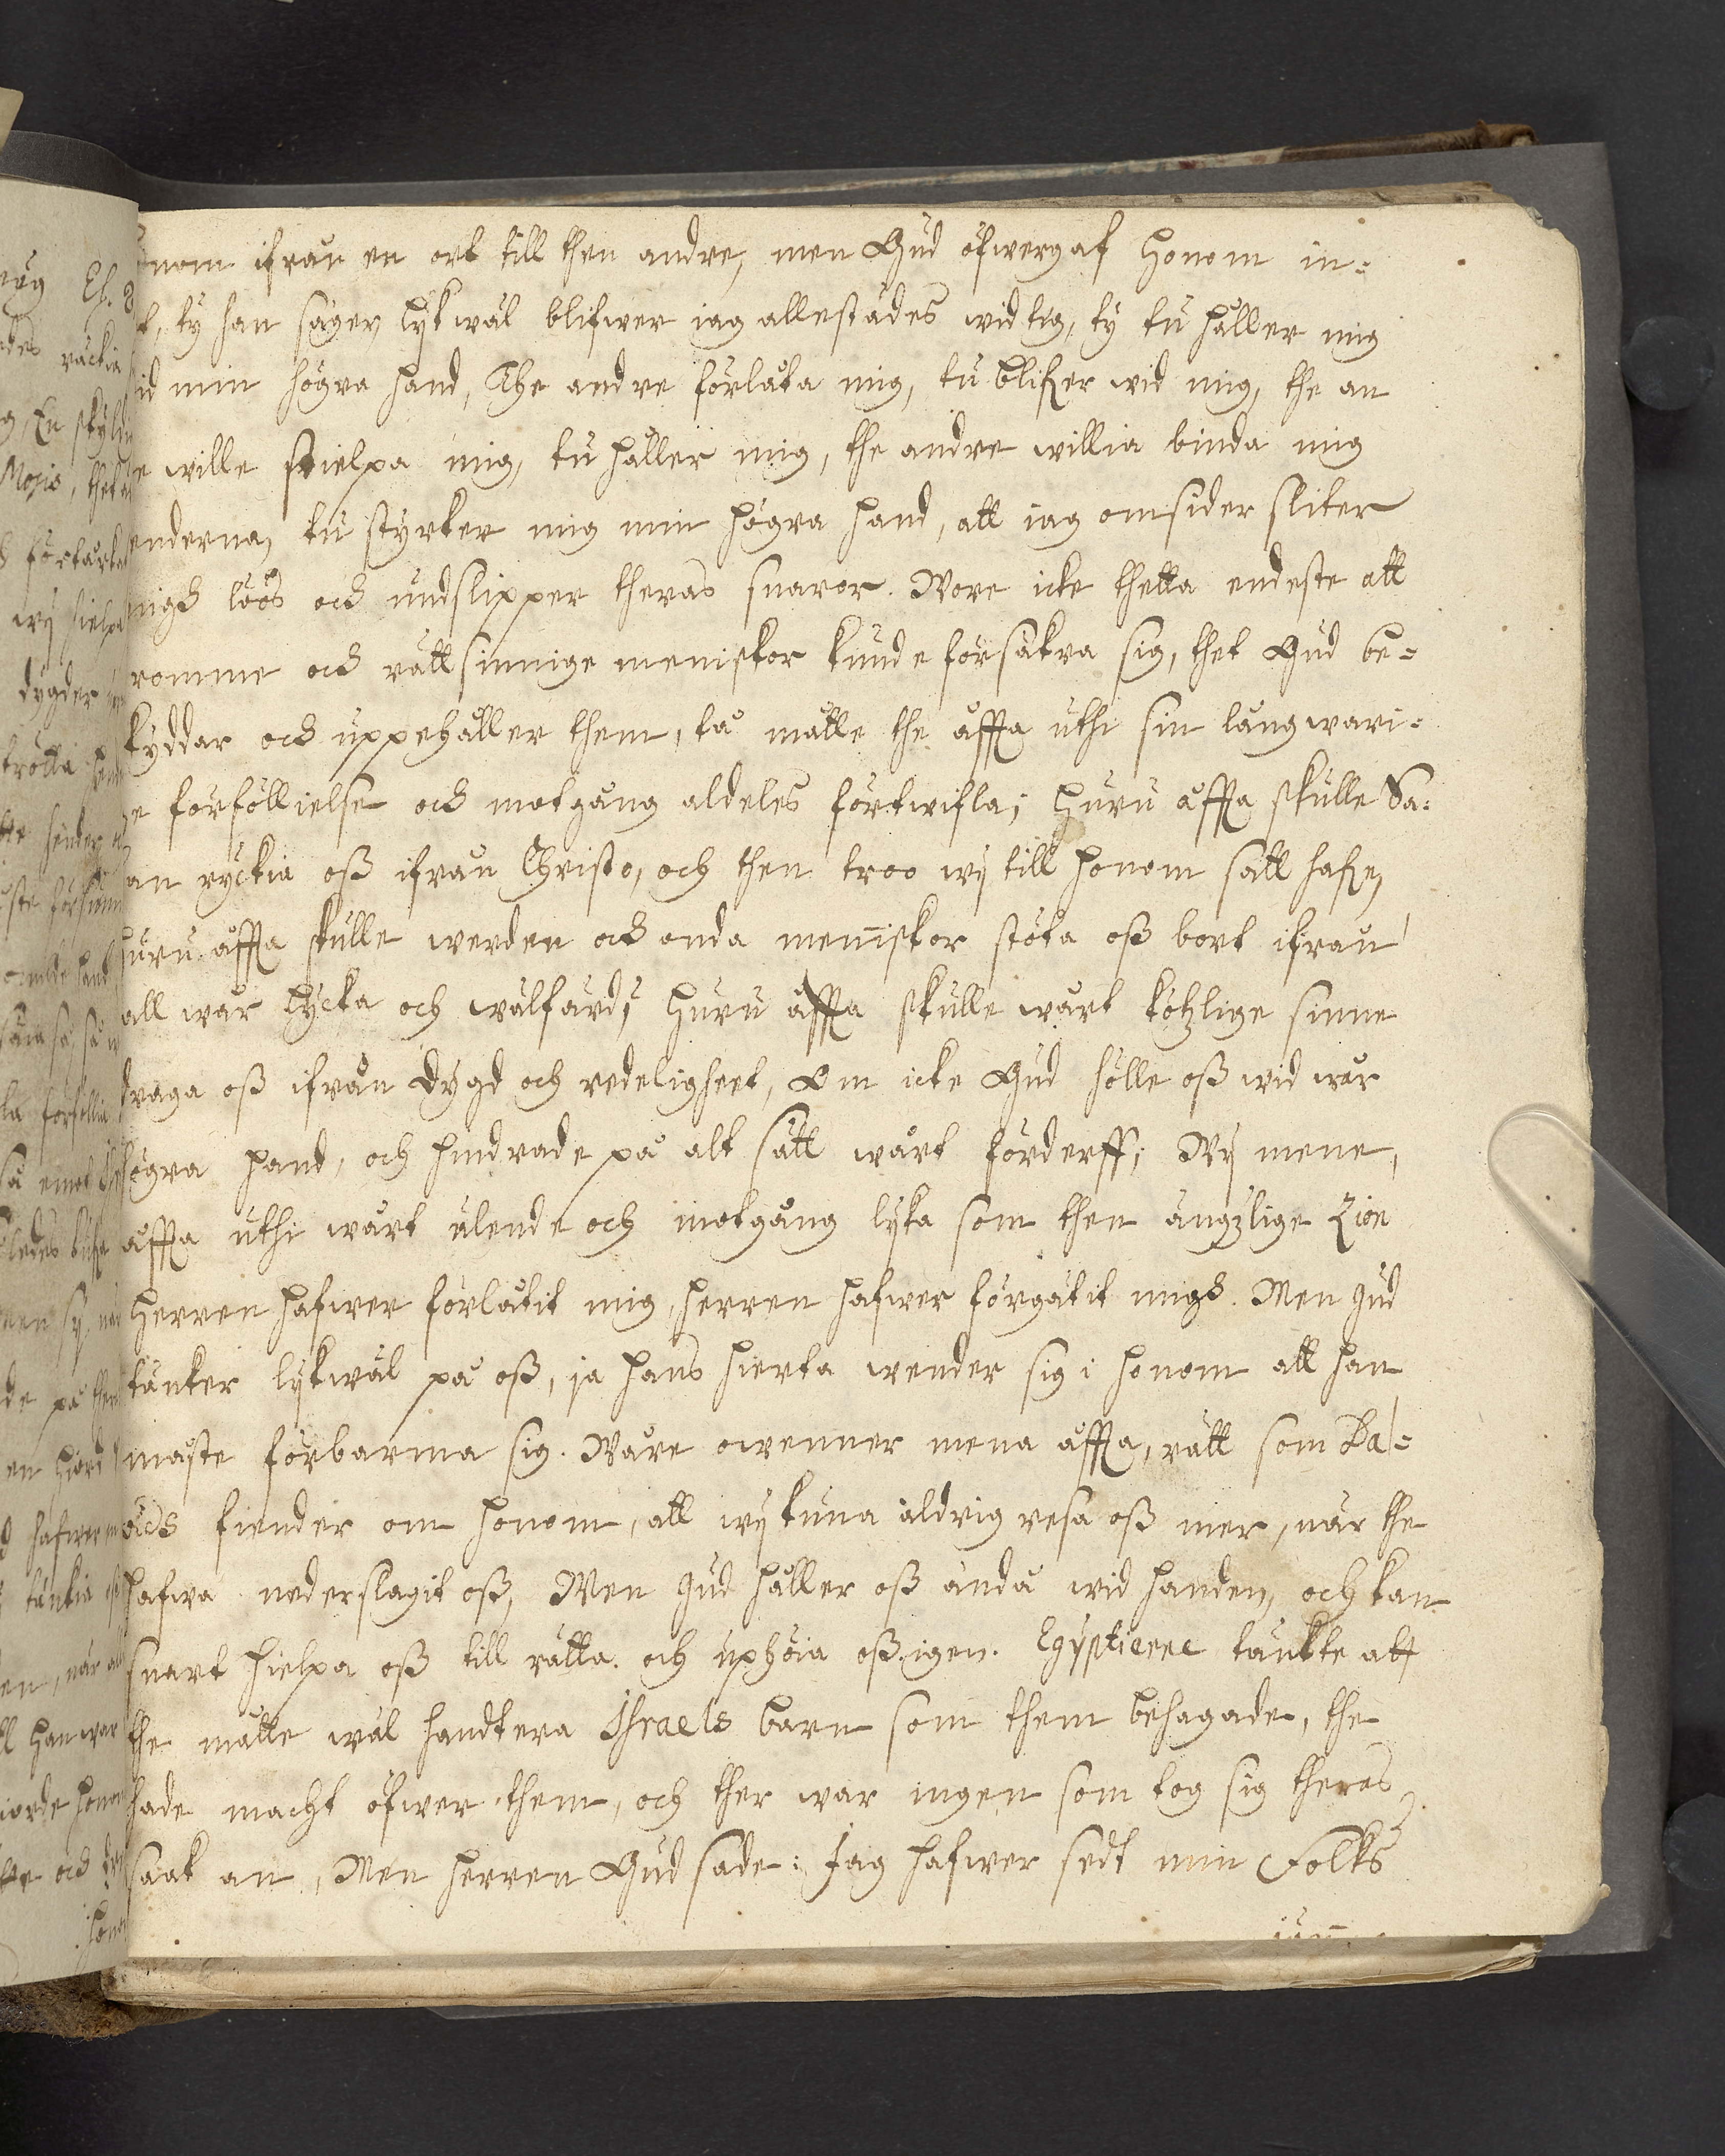 nom ifrån en ort till then andre, men Gud öfwergaf honom in=
t, ty han säger lykwäl blifwer iag allestädes wid tig, ty tu håller mig
id min högra hand, The andre förlåta mig, tu blifver wid mig, the an
e wille stielpa mig, tu håller mig, the andre willia binda mig
enderna, tu styrker mig min högra hand, att iag omsider sliter
migh löös och undslipper theras snaror. Wore icke thetta endeste att
romme och rättsinnige meniskor kunde försäkra sig, thet Gud be=
kyddar och uppehåller them, tå måtte the åffta uthi sin långwari=
e förföllielse och motgång aldeles förtwifla; huru åffta skulle Sa=
an ryckia oß ifrån Christo, och then troo wij till honom satt hafve,
huru åffta skulle werden och onda menniskor stöta oß bort ifrån
all wår lycka och wälfärd; huru åffta skulle wårt kötzlige sinne
draga oß ifrån dygd och redeligheet, Om icke Gud hölle oß wid wår
högra hand, och hindrade på alt sätt wårt förderff; Wij mene,
åffta uthi wårt älende och motgång lyka som then ängzlige Zion
Herren hafwer förlåtit mig, herren hafwer förgätit migh. Men Gud
tänker lykwäl på oß, ja hans hierta wender sig i honom att han
måste förbarma sig. Wåre owenner mena åffta, rätt som Da=
vids fiender om honom, att wij kuna aldrig resa oß mer, när the
hafwa nederslagit oß, Men Gud håller oß ändå wid handen, och kan
snart hielpa oß till rätta. och uphöia oß igen. Egyptierne tänkte att
the måtte wäl handtera Israels barn som them behagade, the
hade macht öfwer them, och ther war ingen som tog sig theras
saak an, Men herren Gud sade: Jag hafwer sedt min Folks